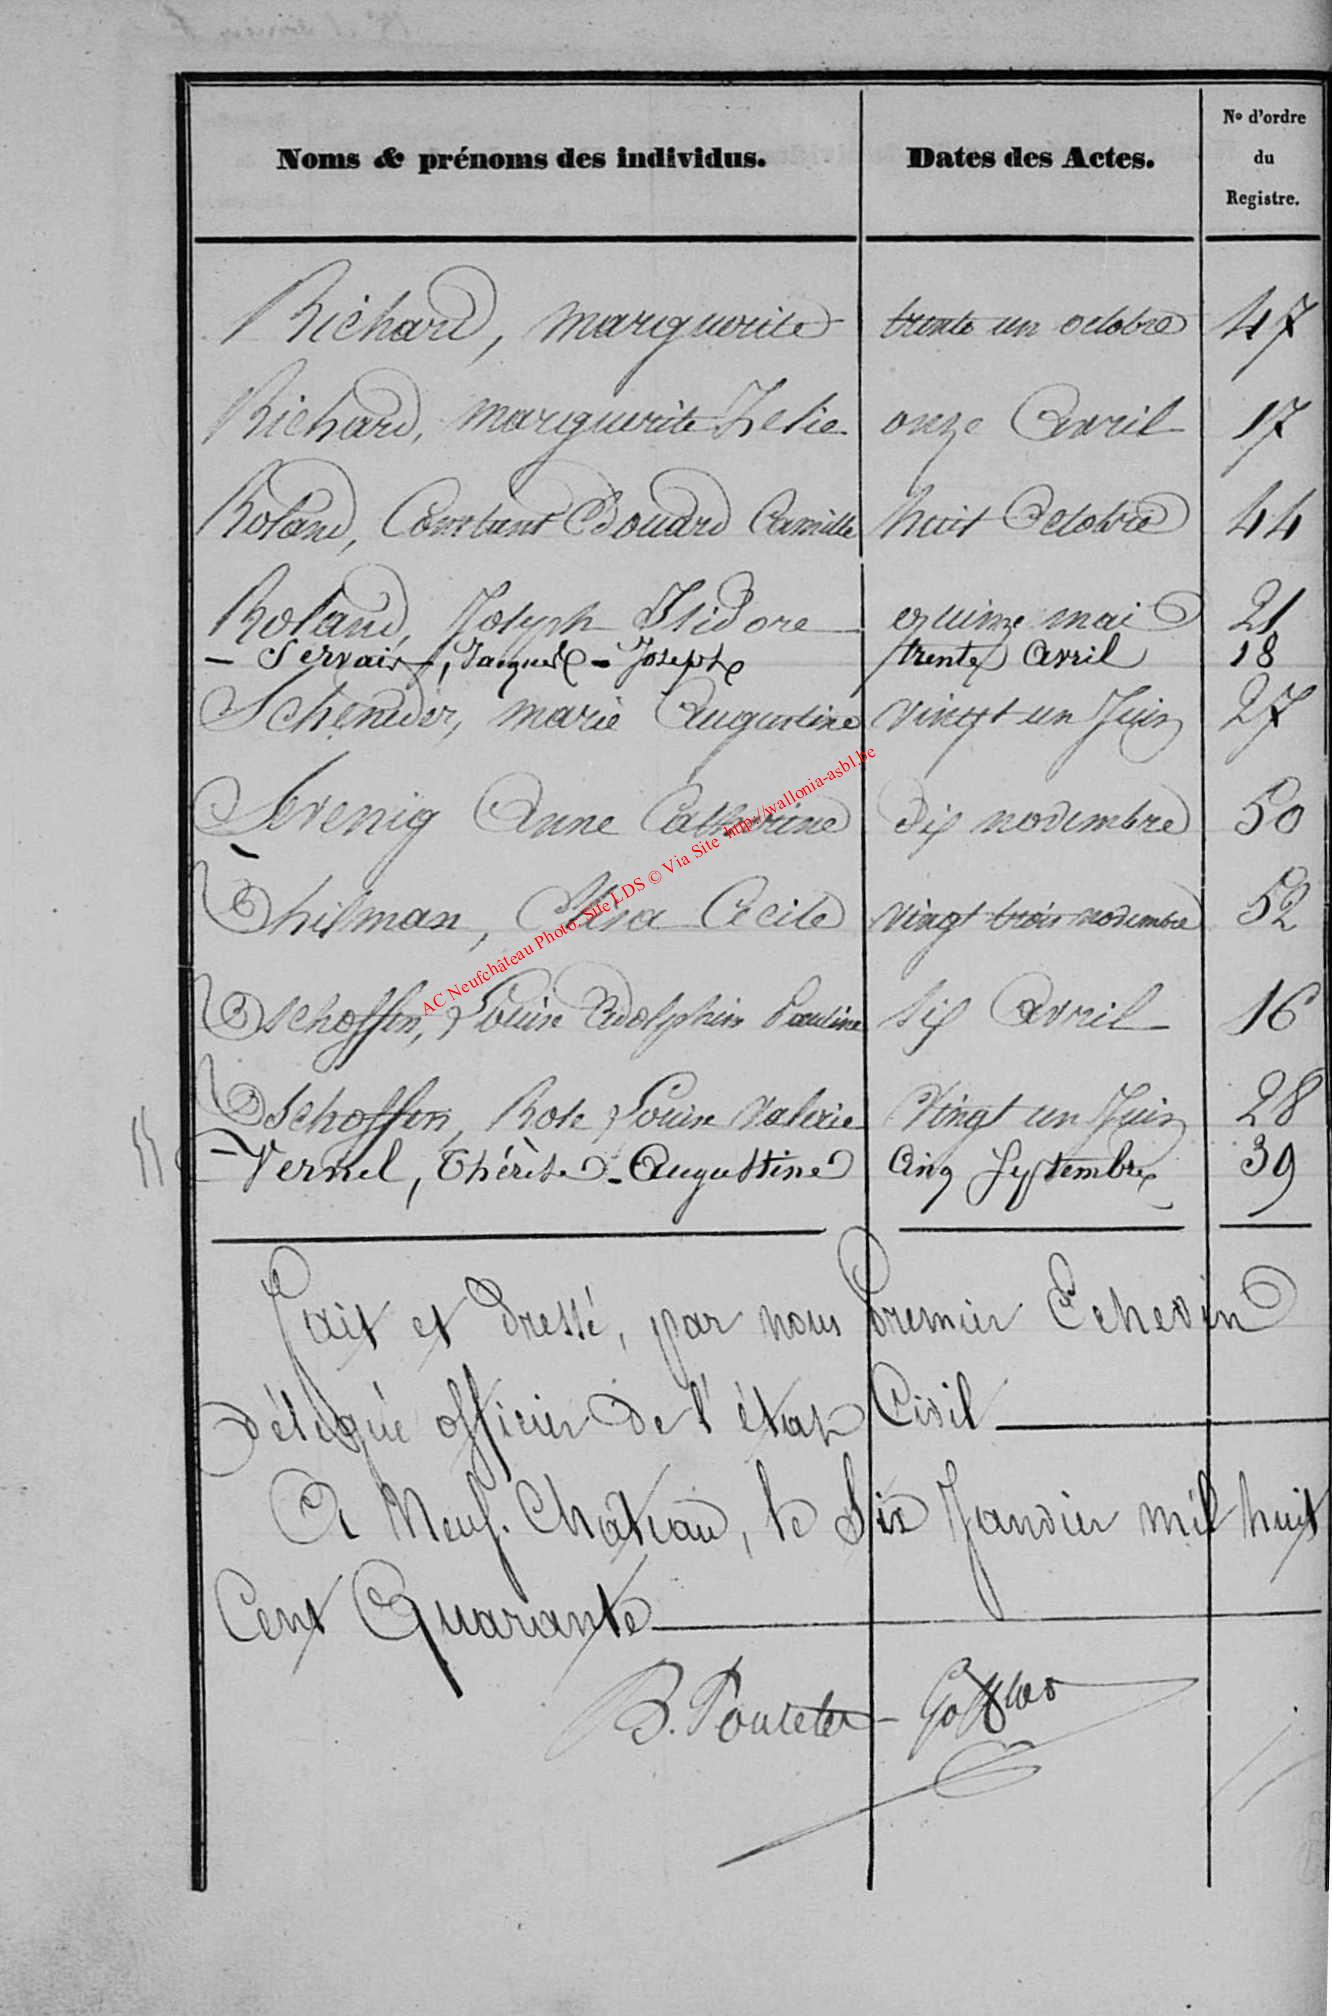 Noms & prénoms des individus. Dates des Actes. No d'ordre du Registre.
Richard, marguerite trente un octobre 47
Richard, marguerite Zelie onze Avril 17
Roland, Constant Edouard Camille huit Octobre 44
Roland, Joseph Isidore quinze mai 21
Servais, Jacques - Joseph trente Avril 18
Scheneder, marie Augustine vingt un Juin 27
Sevenig Anne Catherine dix novembre 50
Thilman, Cecile vingt trois novembre 52
Tschoffen, Louise Adolphine Pauline six Avril 16
Tschoffen, Rose Louise Valerie Vingt un Juin 28
Vernel, Thérèse - Augustine Cinq Septembre 39
AC Neufchâteau Photo. Site LDS © Via Site http://wallonia-asbl.be
fait et dressé, par nous premier Echevin
délégué officier de l'état Civil
A Neuf-Chateau, le Six Janvier mil huit
Cent Quarante
B.